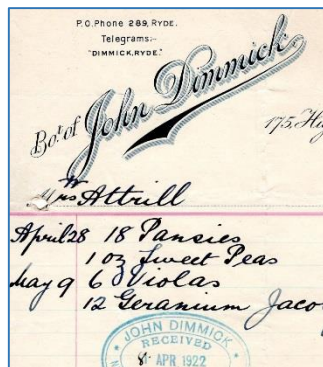 P.O. Phone 289, RYDE.
Telegrams:-
"DIMMICK, RYDE."
Bot. of John Dimmick.
175, Hi
Mrs W Attrill
April 28 18 Pansies
1 oz Sweet Peas
May 9 6 Violas
12 Geranium Jaco
JOHN DIMMICK
RECEIVED
APR 1922